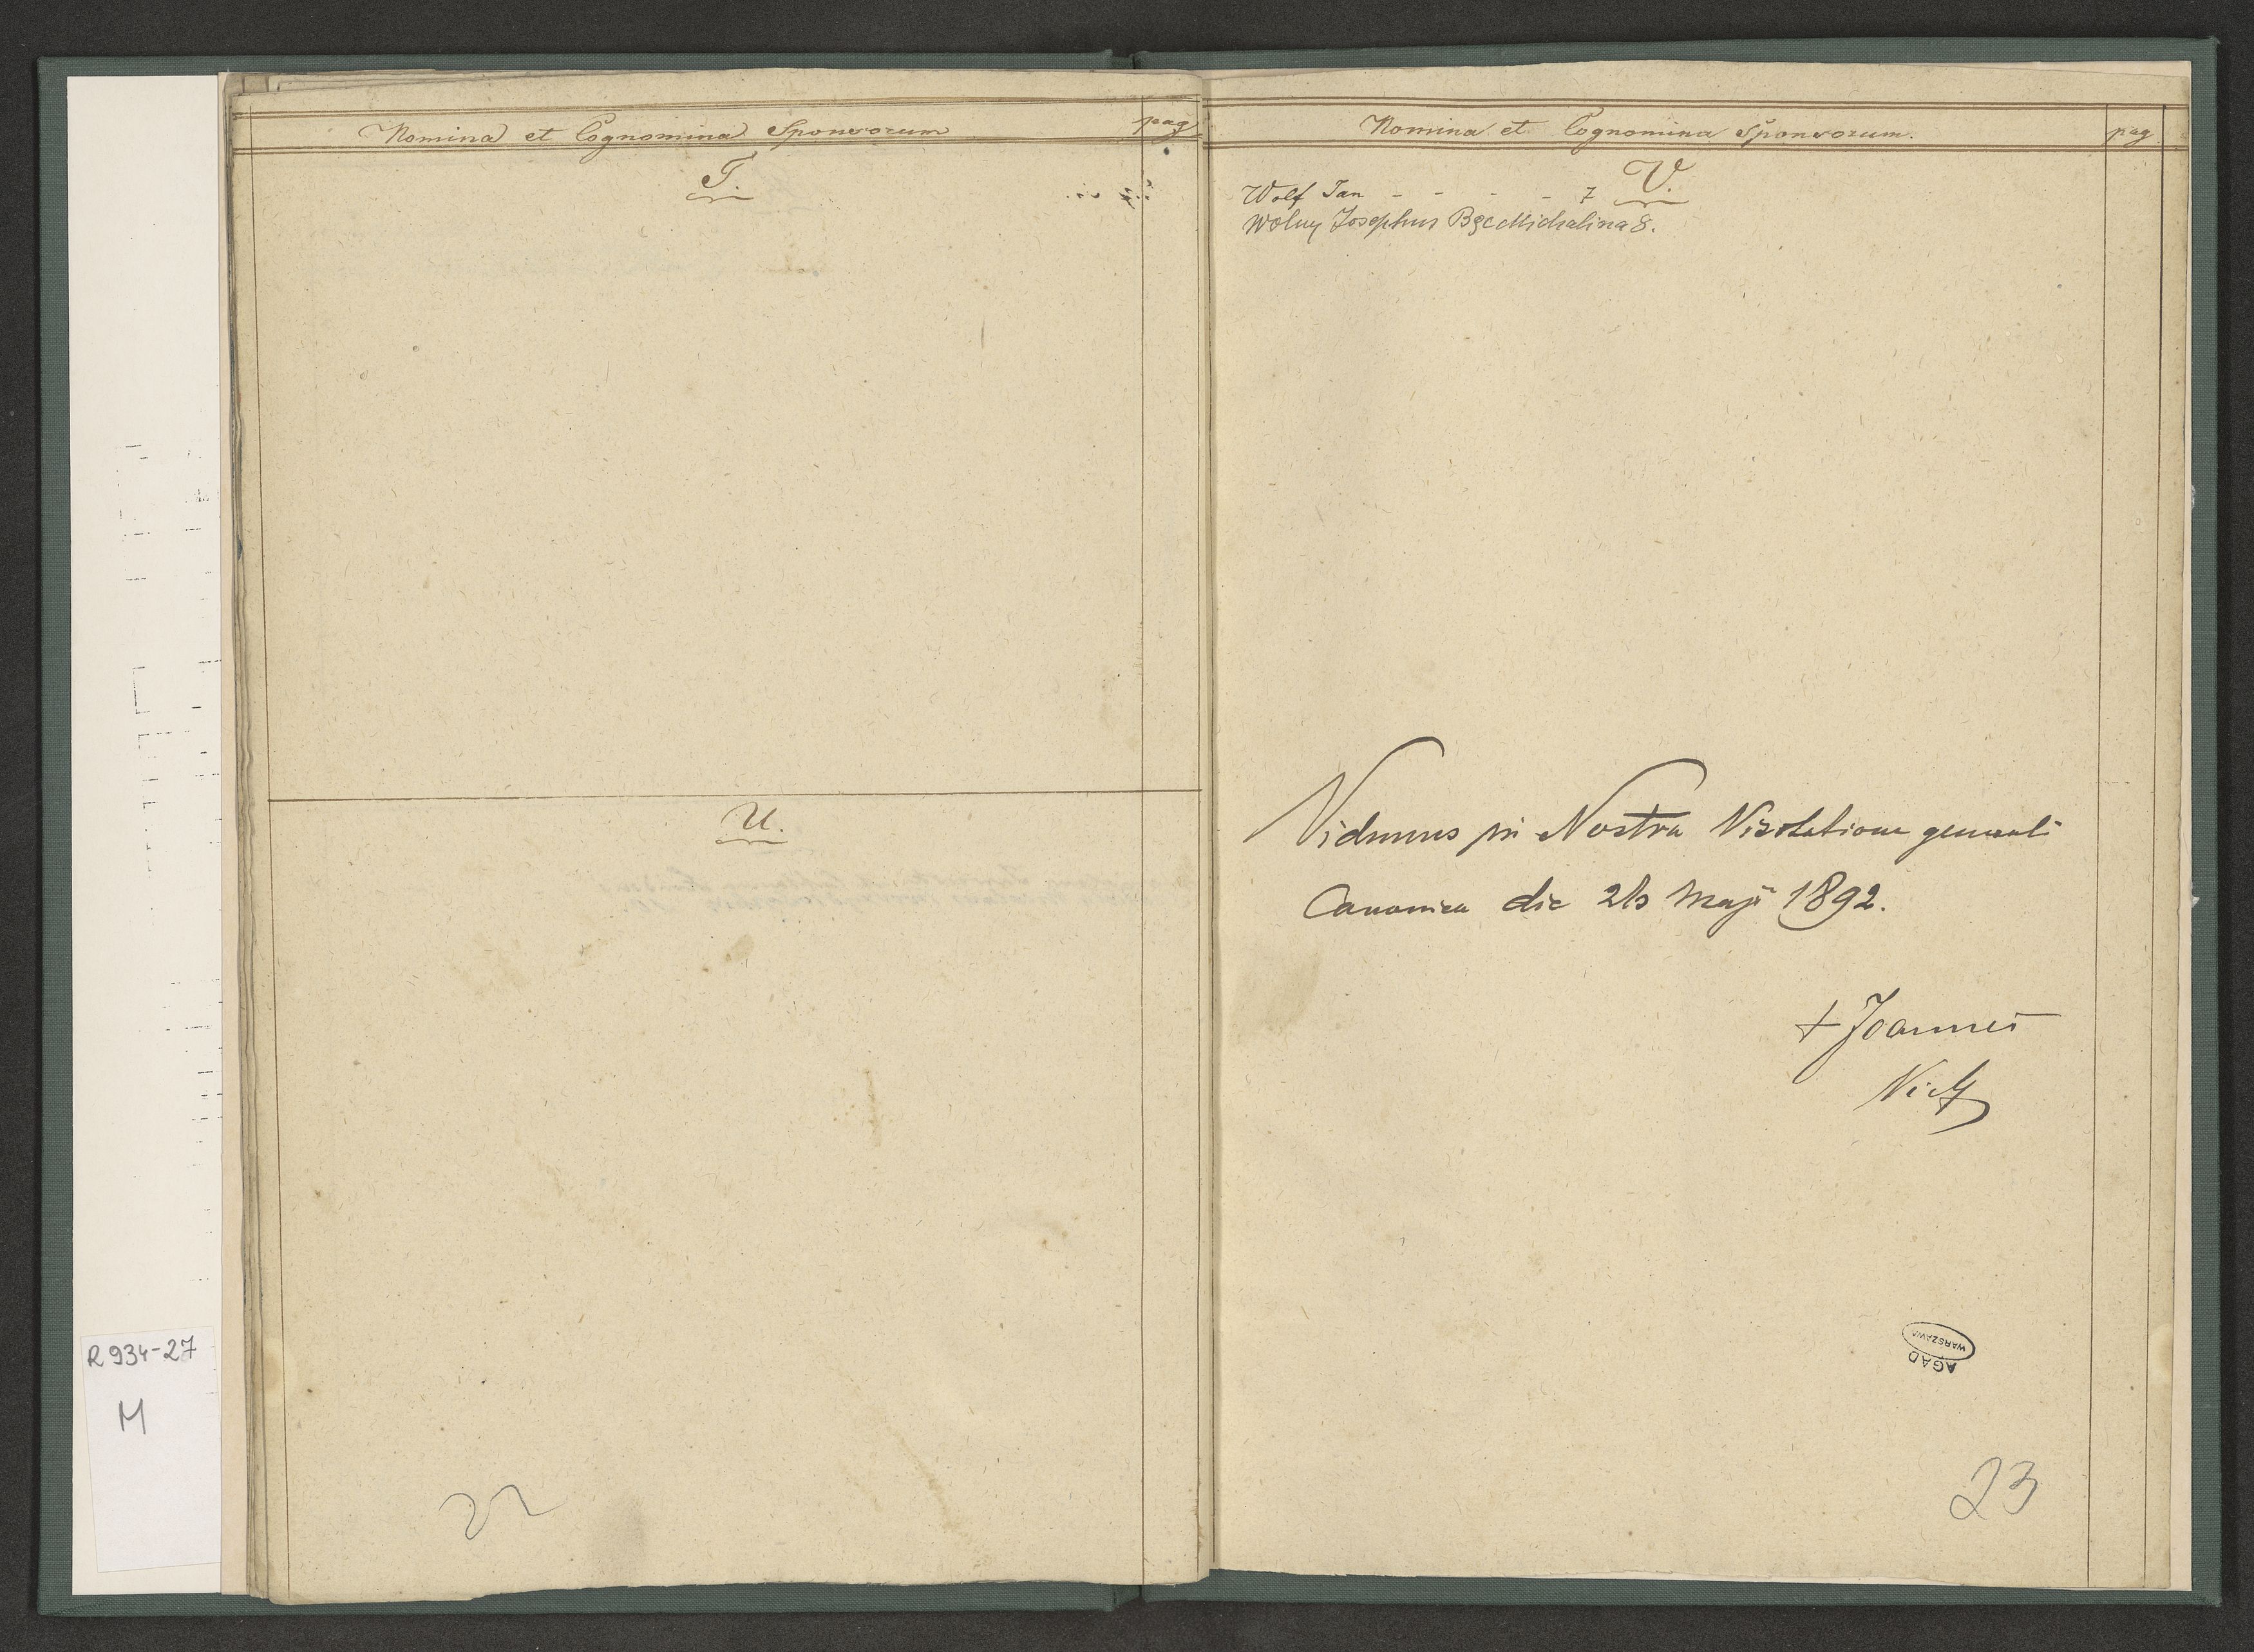 Nomina et Cognomina Sponsorum
pag
T.
U.
22
Nomina et Cognomina Sponsorum.
pag.
V.
Wolf Jan - - - - 7
Wolny Josephus Bąc Michalina 8.
Vidimus in Nostra Visitatione generali
Canonica die Maji 1892.
+ Joannes
23
WARSZAWA
AGAD
R 934-27
M